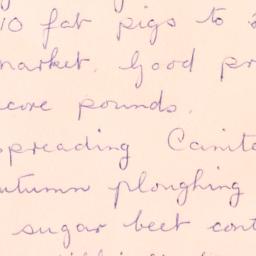 10 fat pigs to
market. Good pr
score pounds.
spreading
autumn ploughing
sugar beet cont